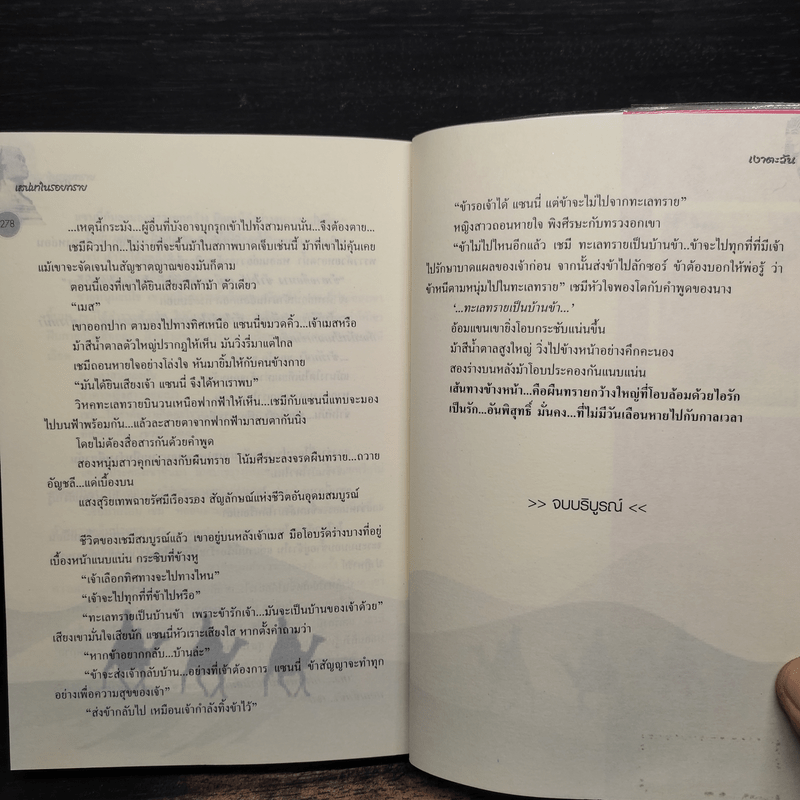 เสน่หาในรอยทราย
278
...เหตุนี้กระมัง...ผู้อื่นที่บังอาจบุกรุกเข้าไปทั้งสามคนนั้น...จึงต้องตาย...
เชมีผิวปาก...ไม่ง่ายที่จะขึ้นม้าในสภาพบาดเจ็บเช่นนี้ ม้าที่เขาไม่คุ้นเคย
แม้เขาจะจัดเจนในสัญชาตญาณของมันก็ตาม
ตอนนี้เองที่เขาได้ยินเสียงฝีเท้าม้า ตัวเดียว
“เมส”
เขาออกปาก ตามองไปทางทิศเหนือ แซนนี่ขมวดคิ้ว...เจ้าเมสหรือ
ม้าสีน้ำตาลตัวใหญ่ปรากฏให้เห็น มันวิ่งรี่มาแต่ไกล
เชมีถอนหายใจอย่างโล่งใจ หันมายิ้มให้กับคนข้างกาย
“มันได้ยินเสียงเจ้า แซนนี่ จึงได้หาเราพบ”
วิหคทะเลทรายบินวนเหนือฟากฟ้าให้เห็น...เชมีกับแซนนี่แทบจะมอง
ไปบนฟ้าพร้อมกัน...แล้วละสายตาจากฟากฟ้ามาสบตากันนิ่ง
โดยไม่ต้องสื่อสารกันด้วยคำพูด
สองหนุ่มสาวคุกเข่าลงกับผืนทราย โน้มศีรษะลงจรดผืนทราย...ถวาย
อัญชลี...แด่เบื้องบน
แสงสุริยเทพฉายรัศมีเรืองรอง สัญลักษณ์แห่งชีวิตอันอุดมสมบูรณ์
ชีวิตของเชมีสมบูรณ์แล้ว เขาอยู่บนหลังเจ้าเมส มือโอบรัดร่างบางที่อยู่
เบื้องหน้าแนบแน่น กระซิบที่ข้างหู
“เจ้าเลือกทิศทางจะไปทางไหน”
“เจ้าจะไปทุกที่ที่ข้าไปหรือ”
“ทะเลทรายเป็นบ้านข้า เพราะข้ารักเจ้า...มันจะเป็นบ้านของเจ้าด้วย”
เสียงเขามั่นใจเสียนัก แซนนี่หัวเราะเสียงใส หากตั้งคำถามว่า
“หากข้าอยากกลับ...บ้านล่ะ”
“ข้าจะส่งเจ้ากลับบ้าน...อย่างที่เจ้าต้องการ แซนนี่ ข้าสัญญาจะทำทุก
อย่างเพื่อความสุขของเจ้า”
“ส่งข้ากลับไป เหมือนเจ้ากำลังทิ้งข้าไว้”
เงาตะวัน
“ข้ารอเจ้าได้ แซนนี่ แต่ข้าจะไม่ไปจากทะเลทราย”
หญิงสาวถอนหายใจ พิงศีรษะกับทรวงอกเขา
“ข้าไม่ไปไหนอีกแล้ว เชมี ทะเลทรายเป็นบ้านข้า..ข้าจะไปทุกที่ที่มีเจ้า
ไปรักษาบาดแผลของเจ้าก่อน จากนั้นส่งข้าไปลักซอร์ ข้าต้องบอกให้พ่อรู้ ว่า
ข้าหนีตามหนุ่มไปในทะเลทราย” เชมีหัวใจพองโตกับคำพูดของนาง
‘...ทะเลทรายเป็นบ้านข้า...’
อ้อมแขนเขายิ่งโอบกระชับแน่นขึ้น
ม้าสีน้ำตาลสูงใหญ่ วิ่งไปข้างหน้าอย่างคึกคะนอง
สองร่างบนหลังม้าโอบประคองกันแนบแน่น
เส้นทางข้างหน้า...คือผืนทรายกว้างใหญ่ที่โอบล้อมด้วยไอรัก
เป็นรัก...อันพิสุทธิ์ มั่นคง...ที่ไม่มีวันเลือนหายไปกับกาลเวลา
>> จบบริบูรณ์ <<